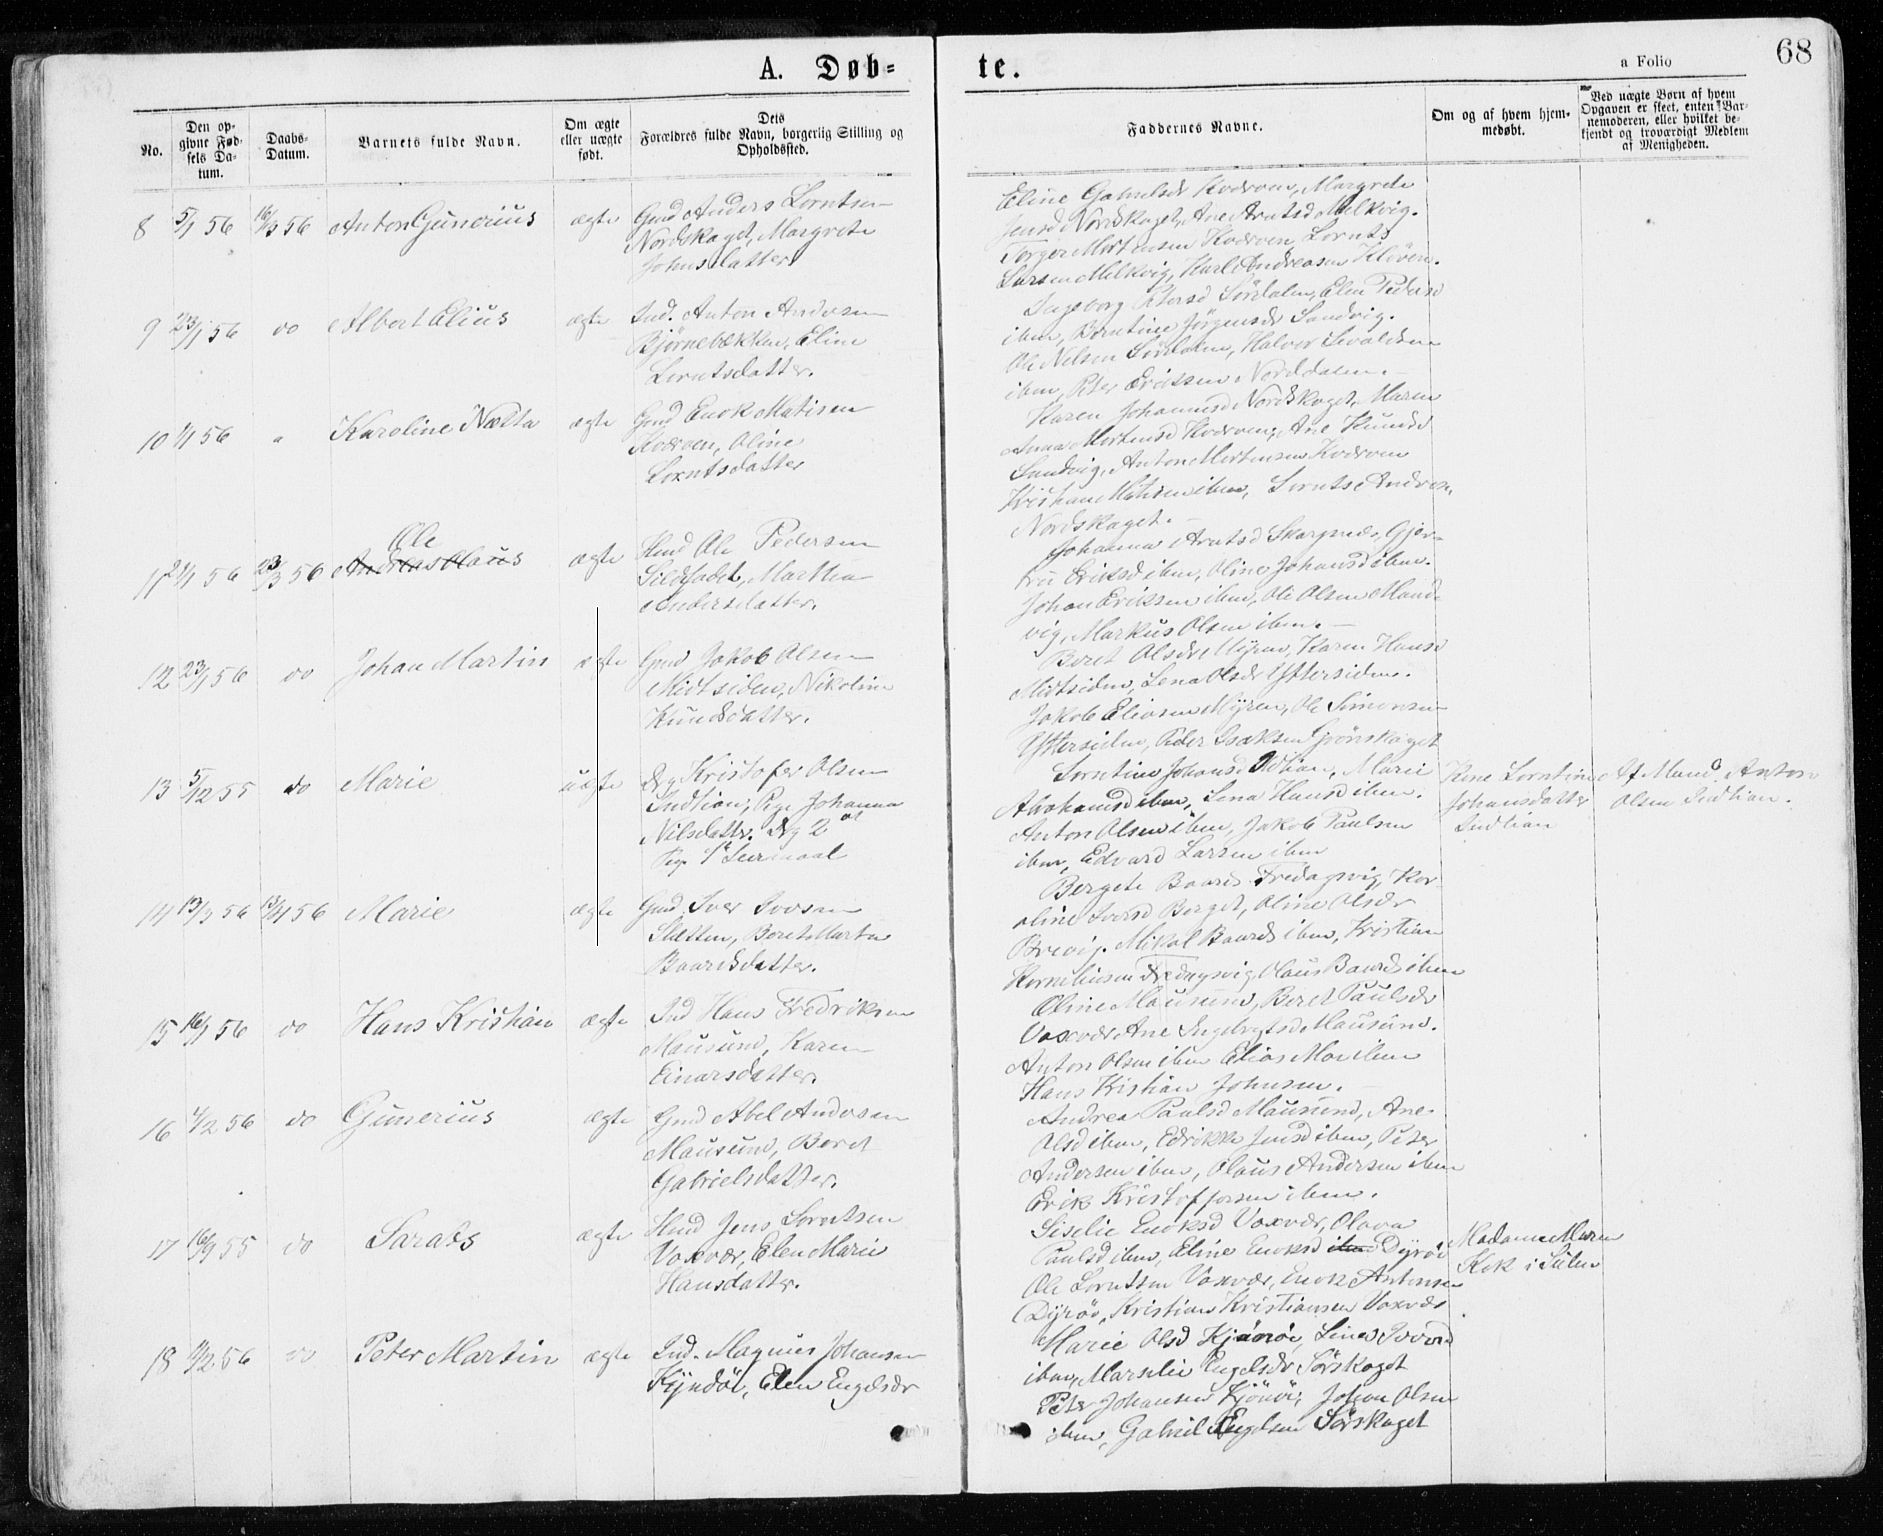 A. Døb=
te.
a Folio
68
No.
Den op=
givne Fød=
sels Da=
tum.
Daabs=
Datum.
Barnets fulde Navn.
Om ægte
eller uægte
født.
Dets
Forældres fulde Navn, borgerlig Stilling og
Opholdssted.
Faddernes Navne.
Om og af hvem hjem=
medøbt.
Ved uægte Børn af hvem
Opgaven er skeet, enten Bar=
nemoderen, eller hvilket be=
kjendt og troværdigt Medlem
af Menigheden.
8 5/1 56 16/3 56 Anton Gunerius ægte Gmd Anders Lorntsen
Nordskaget, Margrete
Johnsdatter
Eline Gabrielsdr Kværven, Margrete
Jensd Nordskaget, Ane Arntsd Melkvig.
Torger Mortensen Kværven, Lornts
Larsen Melkvig, Karl Andreasen Kløven.
9 23/1 56 do Albert Elius ægte Ind. Anton Andersen
Bjørnebækken, Eline
Lorntsdatter.
Ingeborg Petersd Sørdalen, Elen Pedersd
ibm, Berntine Jörgensdr Sandvig.
Ole Nilsen Sørdalen, Halvor Sivaldsen
ibm, Peter Eriksen Norddalen.
10 1/1 56 " Karoline Nætta ægte Gmd Enok Matisen
Kværven, Oline
Lorntsdatter
Karen Johannesd Nordskaget, Maren
Anna Mortensd Kværven, Ane Knudsd
Sandvig, Anton Mortensen Kværven
Kristian Matisen ibm, Lornts Anders.
Nordskaget.
Ole
11 21/1 56 23/3 56 Andreas Olaus ægte Hmd Ole Pedersen
Sildfadet, Martha
Andersdatter.
Johanna Arntsd Skarpnes, Gjer-
tru Eriksd ibm, Oline Johansd ibm.
Johan Eriksen ibm, Ole Olsen Mand-
vig, Markus Olsen ibm.
12 23/1 56 do Johan Martin ægte Gmd Jakob Olsen
Midtsiden, Nikoline
Knudsdatter.
Beret Olsdr Myren, Karen Hansd
Midtsiden, Lena Olsdr Yttersiden.
Jakob Eliasen Myren, Ole Simonsen
Yttersiden, Peder Isaksen Grønskaget
13 5/12 55 do Marie uægte Ung Kristofer Olsen
Indtian, Pige Johanna
Nilsdatter. Ung 2et
Pige 1ste Leiermaal
Lorntine Johansd Indtian, Marie
Abrahamsd ibm, Lena Hansd ibm.
Anton Olsen ibm, Jakob Paulsen
ibm, Edvard Larsen ibm
Kone Lorntine
Johansdatter
Indtian
Af Mand. Anton
Olsen Indtian.
14 13/3 56 13/4 56 Marie ægte Gmd. Iver Iversen
Sletten, Beret Marta
Baardsdatter.
Bergete Baards. Fredagsvig, Kar-
oline Iversd Berget, Oline Olsdr
Brevig. Mikal Baards ibm, Kristian
Korneliusen Fredagsvig, Claus Baards ibm
15 16/1 56 do Hans Kristian ægte Ind Hans Fredriksen
Mausund, Karen
Einarsdatter.
Oline Mausund, Beret Paulsdr
Vaxvær, Ane Ingebrgtsd Mausund.
Anton Olsen ibm Elias Moe ibm
Hans Kristian Johnsen.
16 4/2 56 do Gunerius ægte Gmd Abel Andersen
Mausund, Beret
Gabrielsdatter.
Andrea Paulsd Mausund, Ane
Olsd ibm, Edrikke Jensd ibm, Peter
Andersen ibm, Olaus Andersen ibm
Erik Kristoffersen ibm.
17 16/9 55 do Sarats ægte Hmd Jens Lorntsen
Vaxvær, Elen Marie
Hansdatter.
Siselie Enoksd Vaxvær, Olava
Paulsd ibm, Eline Enoksd ibm Dyrøi
Ole Lorntsen Vaxvær, Enok Antonsen
Dyrøi, Kristian Kristiansen Vaxvær
Madame Maren
Kok i Sulen
18 4/2 56 do Peter Martin ægte Ind. Magnus Johansen
Kjyndöi, Elen Engelsdr
Marie Olsd Kjønøi, Lina Iversd
ibm, Marselie Engelsdr Sørskaget
Peter Johansen Kjønøi, Johan Olsen
ibm, Gabriel Engelsen Sørskaget